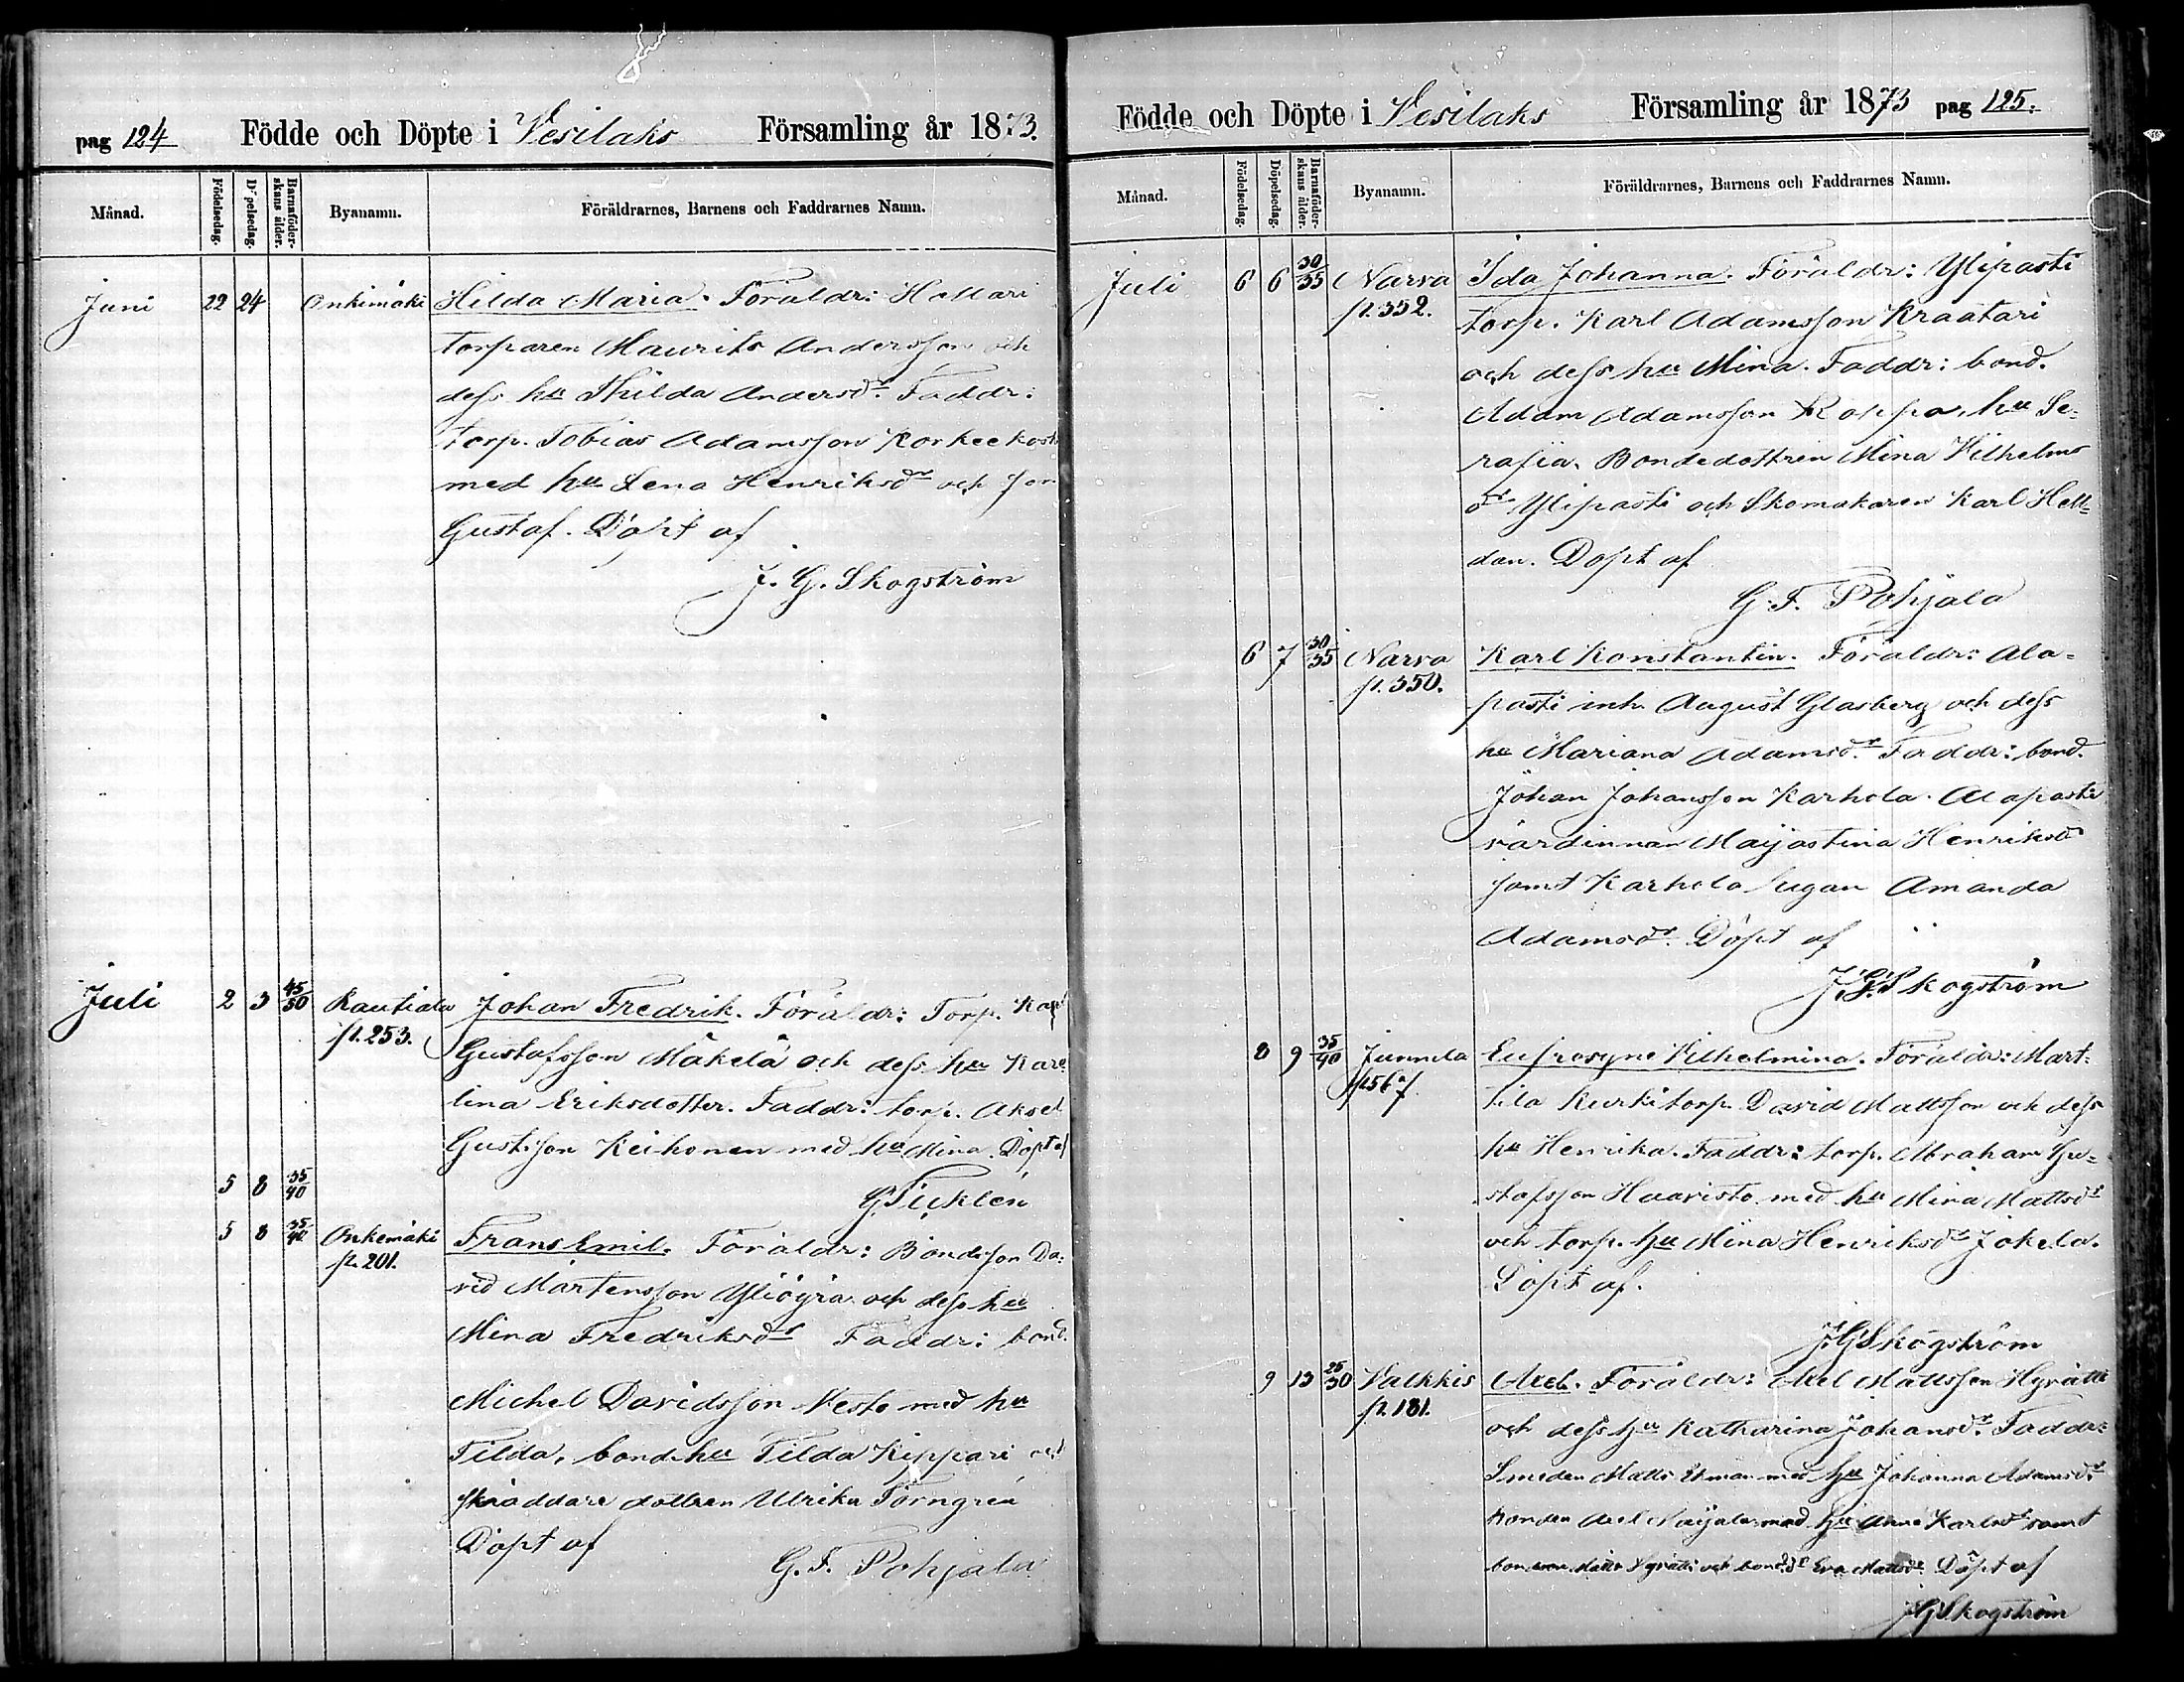 pag 124 Födde och Döpte i Vesilaks Församling år 1873.
Månad. Födelsedag. Döpelsedag. Barnaföderskans ålder. Byanamn. Föräldrarnes, Barnens och Faddrarnes Namn.
Juni 22 24 Onkimäki Hilda Maria. Föräldr: Hollari
torparen Maurits Andersson och
dess hu Thilda Andersdr. Faddr:
torp. Tobias Adamsson Korkeekoski
med hu Lena Henriksdr och son
Gustaf. Döpt af
J. G. Skogström
Juli 2 3 45/50 Rautiala Johan Fredrik. Föräldr: Torp.
p. 253. Gustafsson Mäkelä och dess hu Karo
lina Eriksdotter. Faddr: torp. Aksel
Gustsson Keihonen med hu Mina. Döpt af
5 8 35/40 G Ticklén
5 8 35/40 Onkemäki Frans Emil. Föräldr: Bondeson Da-
p. 201. vid Mårtensson Yliöyrä och dess hu
Mina Fredriksdr Faddr: bond.
Michel Davidsson Vesto med hu
Tilda, bondehu Tilda Kippari och
skräddare dottren Ulrika Törngrén
Döpt af
G. F. Pohjala
Födde och Döpte i Vesilaks Församling år 1873 pag 125.
Månad. Födelsedag. Döpelsedag. Barnaföderskans ålder. Byanamn. Föräldrarnes, Barnens och Faddrarnes Namn.
Juli 6 6 30/35 Narva Ida Johanna. Föräldr: Ylipasti
p. 352. torp. Karl Adamsson Kraatari
och dess hu Mina. Faddr: bond.
Adam Adamsson Roppo, hu Se-
rafia. Bondedottren Mina Vilhelms
dr Ylipasti och Skomakaren Karl Hell-
dan. Döpt af
G. F. Pohjala
6 7 30/35 Narva Karl Konstantin. Föräldr: Ala-
p. 350. pasti inh. August Glasberg och dess
hu Mariana Adamsdr. Faddr: bond.
Johan Johansson Karhola. Alapasti
värdinnan Majastina Henriksdr
samt Karhola pigan Amanda
Adamsdr. Döpt af
J. G. Skogström
8 9 35/40 Junnila Eufrosyne Vilhelmina. Föräldr: Mart-
p. 567. tila Kurki torp. David Mattsson och dess
hu Henrika. Faddr: torp. Abraham Gu-
stafsson Haavisto med hu Mina Mattsdr
och torp. hu Mina Henriksdr Jokela.
Döpt af.
J. G Skogström
9 13 25/30 Valkkis Axel. Föräldr: Axel Mattsson Hyrätti
p. 181. och dess hu Katharina Johansdr. Faddr:
Smeden Matts Ekman med hu Johanna Adamsdr.
bonden Axel med hu Anna Karlsdr samt
bondeson. Matts Hyrätti och bond.dr Eva Mattsdr. Döpt af
J G Skogström